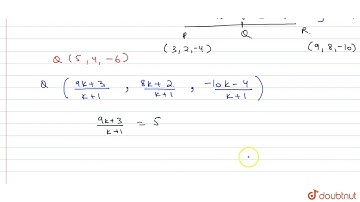 P Q R
(3, 2, -4) (9, 8, -10)
Q (5, 4, -6)
Q ( 9k+3 / k+1 , 8k+2 / k+1 , -10k-4 / k+1 )
9k+3 / k+1 = 5
doubtnut